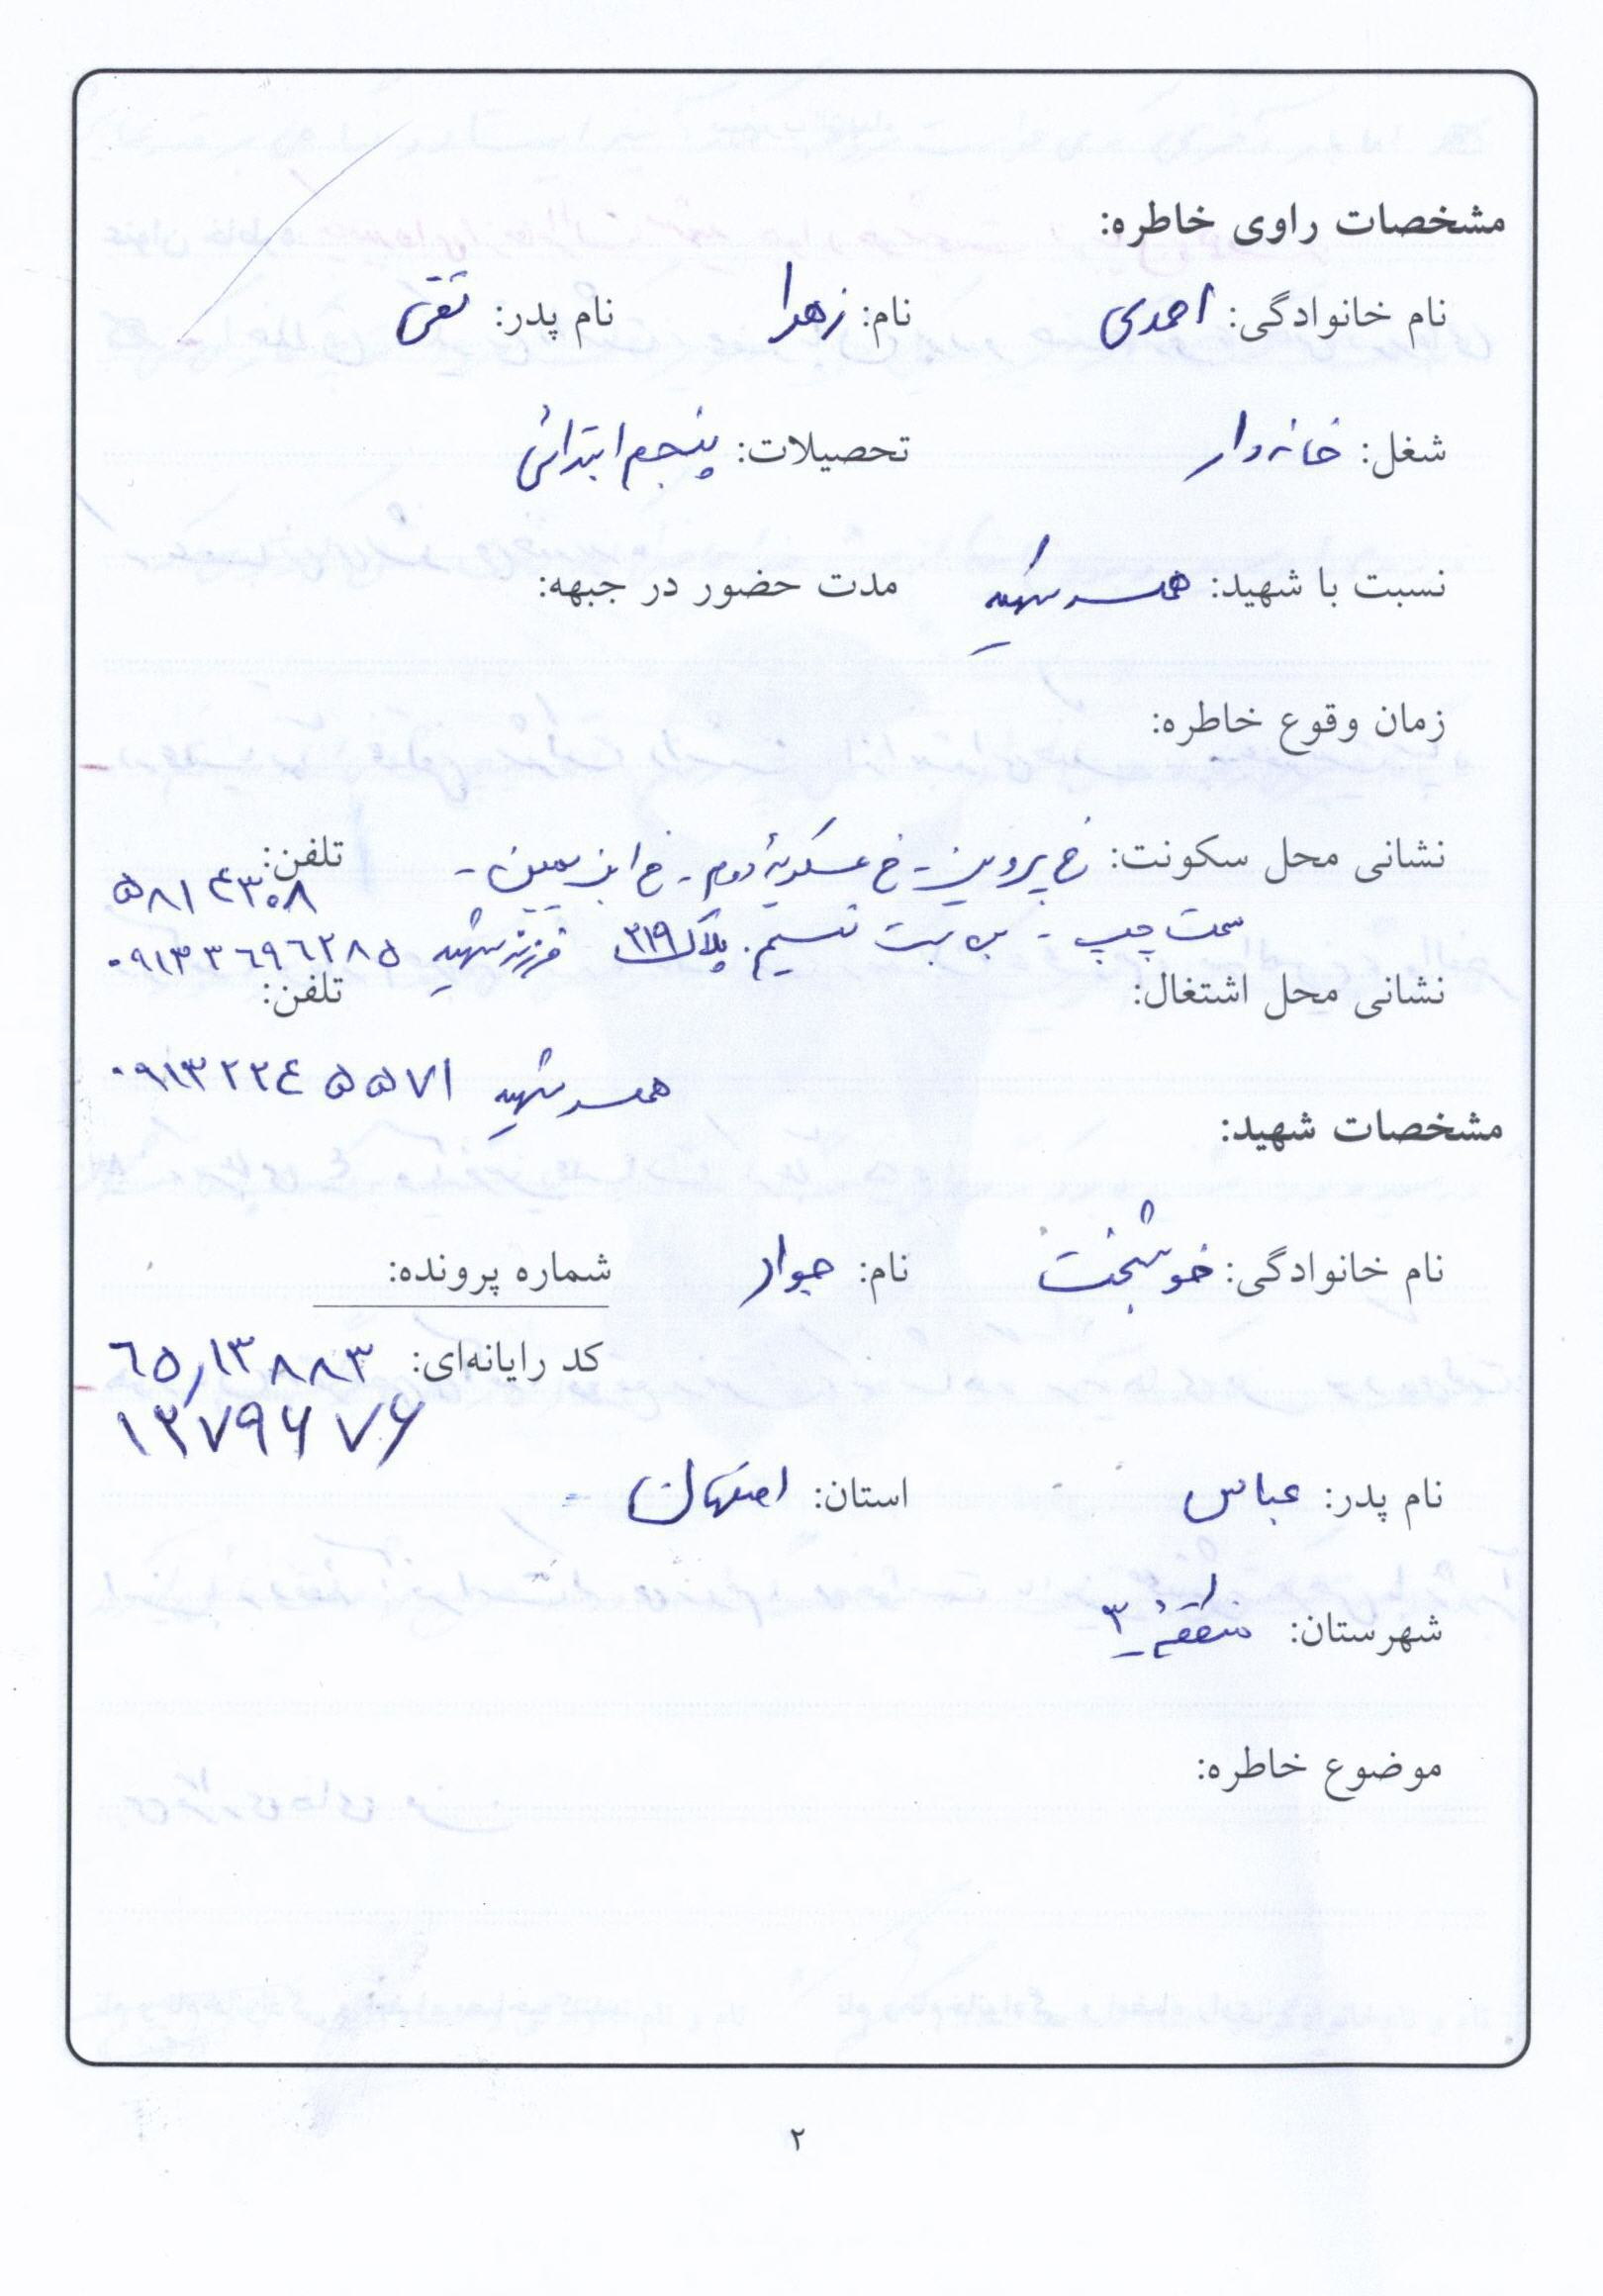 مشخصات راوی خاطره:
نام خانوادگی: احمدی نام: زهرا نام پدر: تقی
شغل: خانه‌دار تحصیلات: پنجم ابتدائی
نسبت با شهید: همسر شهید مدت حضور در جبهه:
زمان وقوع خاطره:
نشانی محل سکونت: خ پروین - خ عسگریهٔ دوم - خ ابن یمین - تلفن:
۵۸۱۴۳۰۸
سمت چپ - بن بست نسیم. پلاک ۳۱۹ فرزند شهید ۰۹۱۳۳۶۹۶۲۸۵
نشانی محل اشتغال: تلفن:
همسر شهید ۰۹۱۳۲۲۴۵۵۷۱
مشخصات شهید:
نام خانوادگی: خوشبخت نام: جواد شماره پرونده:
کد رایانه‌ای: ۶۵,۱۳۸۸۳
۱۲۷۹۶۷۶
نام پدر: عباس استان: اصفهان -
شهرستان: منطقهٔ ۳
موضوع خاطره:
۲